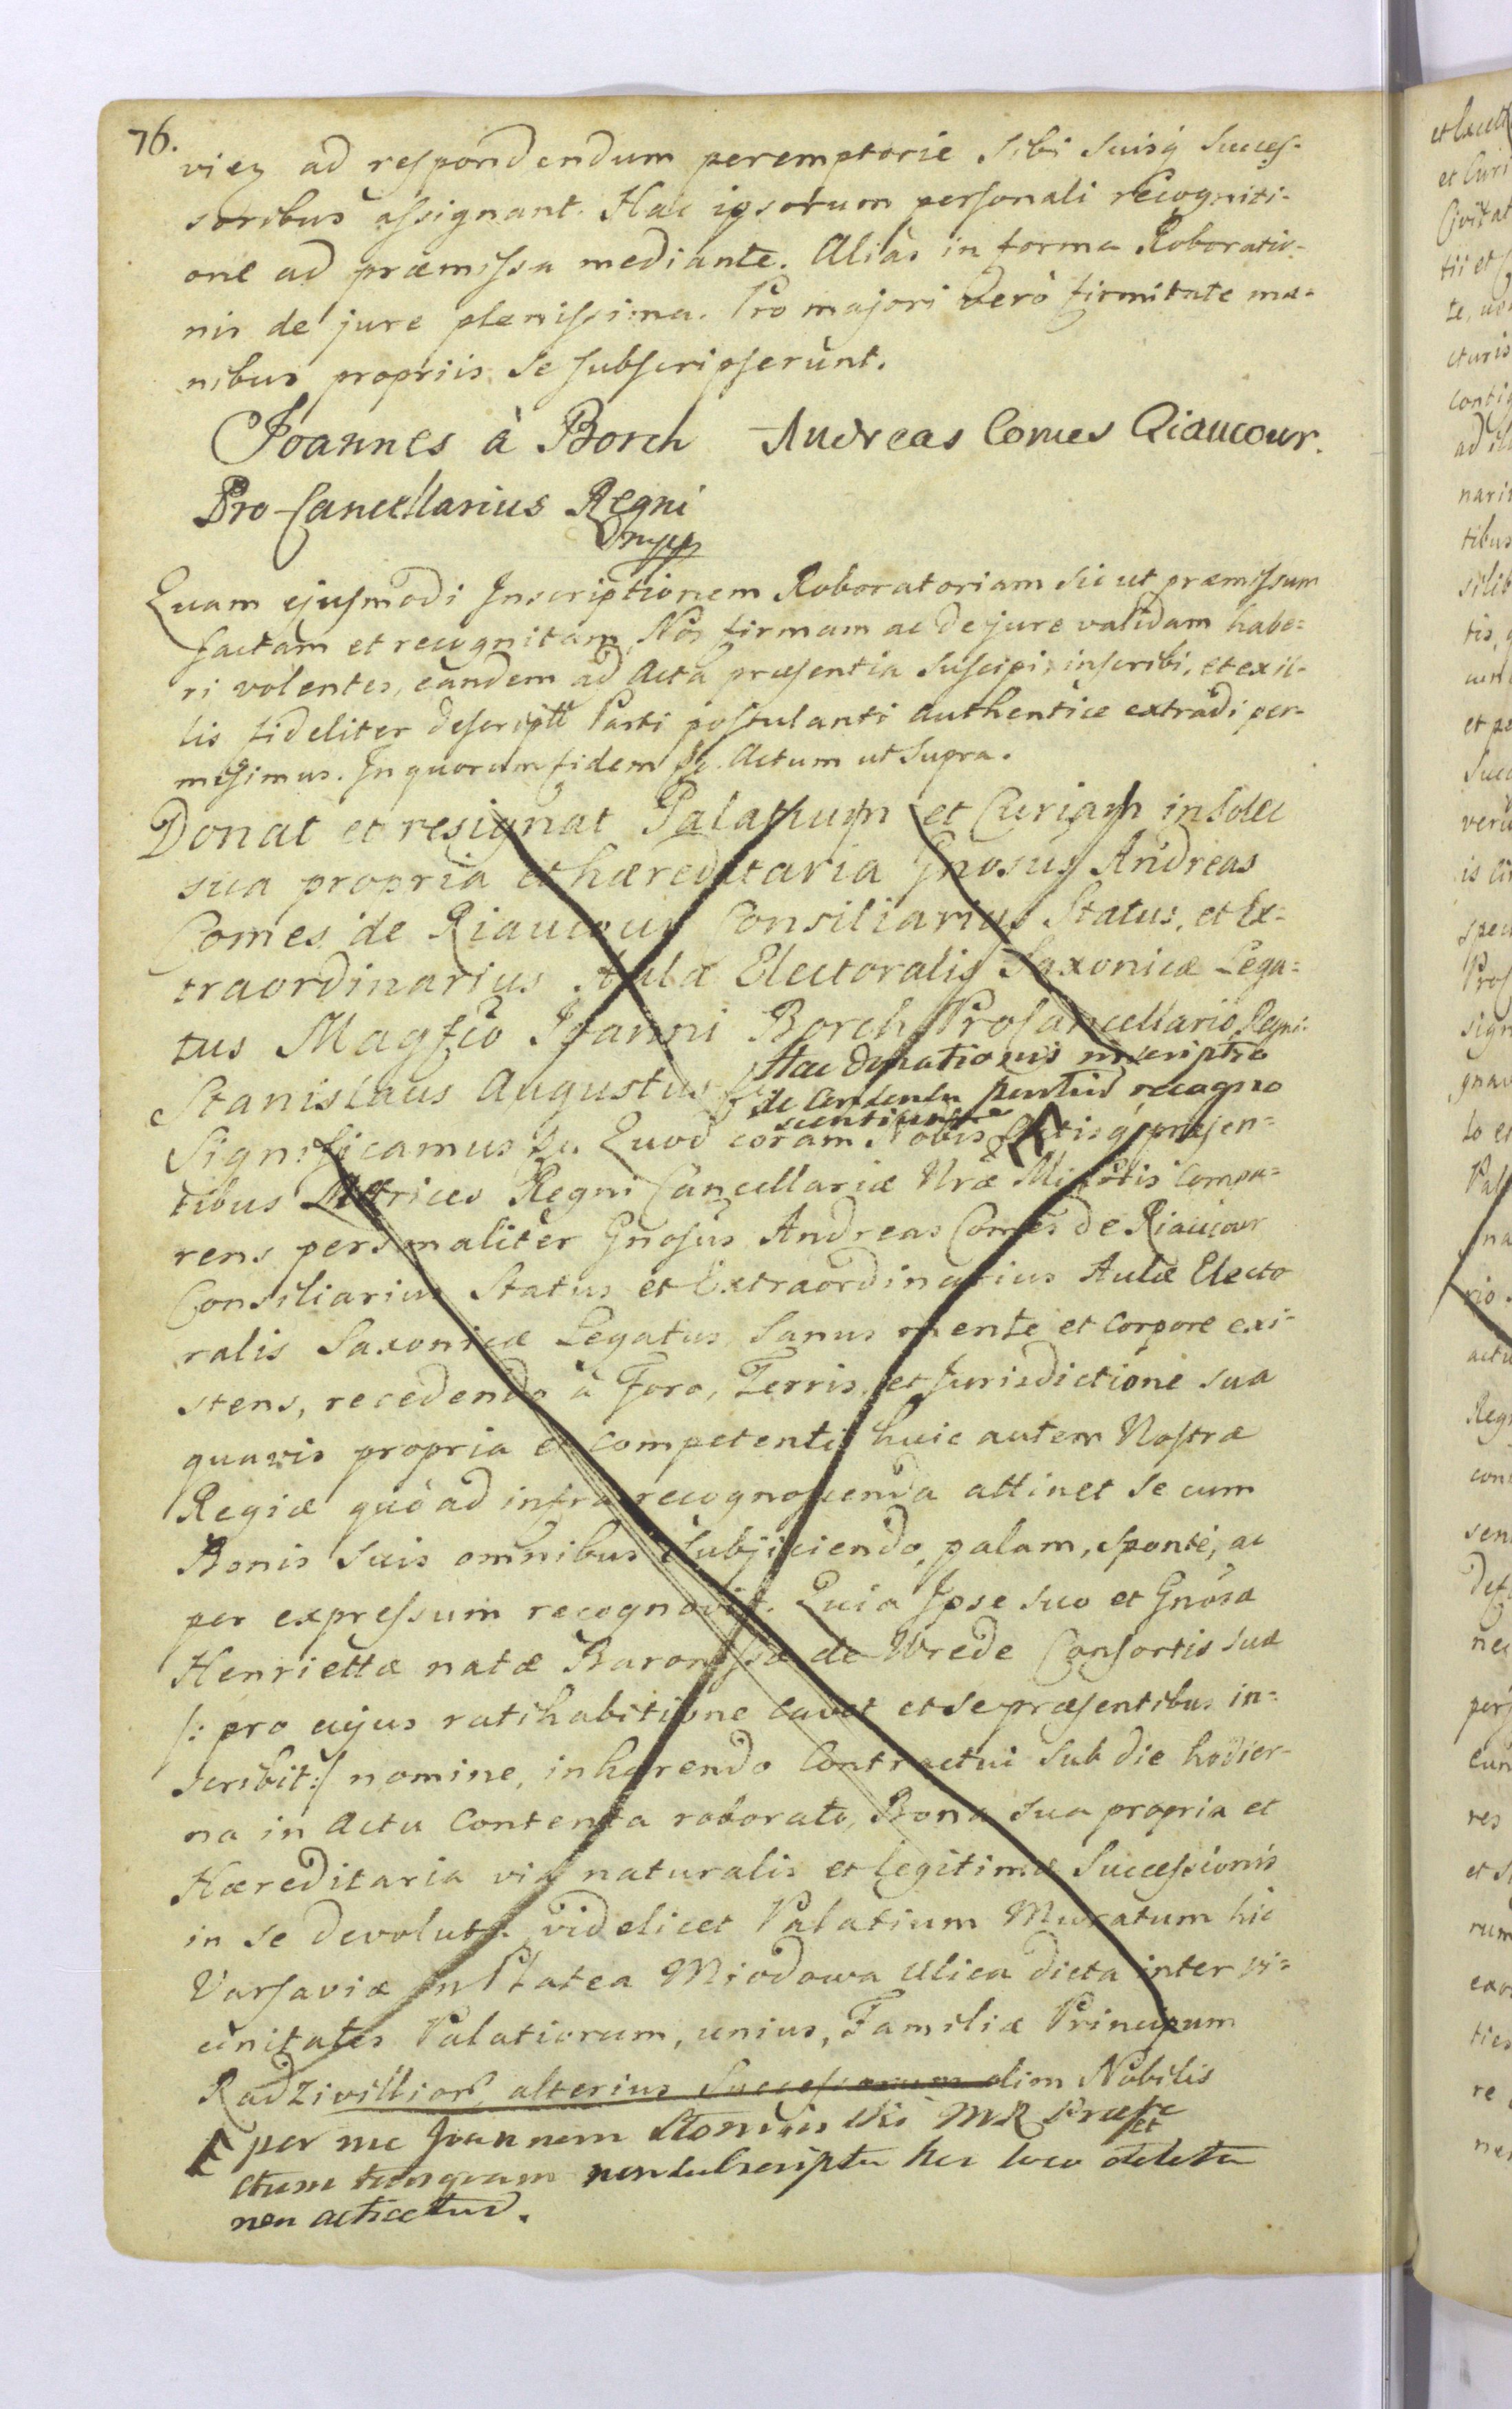 76.
viez ad respondendum peremptorie sibi suisq succes-
soribus assignant. Hac ipsorum personali recogniti-
one ad præmissa mediante. Alias in forma Roboratio-
nis de jure plenissima. Pro majori verò firmitate ma-
nibus propriis se subscripserunt.
Joannes à Borch Andreas Comes Riaucour.
Pro-Cancellarius Regni
mpp
Quam ejusmodi Inscriptionem Roboratoriam sic ut præmissum
factam et recognitam, Nos firmam ac de jure validam habe=
ri volentes, eandem ad Acta præsentia suscipi, inscribi, et ex il-
lis fideliter descriptã Parti postulanti authentice extradi per-
misimus. In quorum fidem &c. Actum ut Supra.
Donat et resignat Palatium et Curiam in solec
sua propria et hæreditaria Gnosus Andreas
Comes de Riaucour Consiliarius Status, et Ex=
traordinarius Aulæ Electoralis Saxonicæ Lega=
tus Magfco Joanni Borch ProCancellario Regni.
Hac donationis inscriptio
Stanislaus Augustus &c. de consensu partium recogno
scentium
Significamus &c. Quod coram Nobis Actisq præsen=
tibus Metrices Regni Cancellariæ Nræ Minoris Compa=
rens personaliter Gnosus Andreas Comes de Riaucour
Consiliarius Status et Extraordinarius Aulæ Electo
ralis Saxonicæ Legatus, Sanus mente et Corpore exi-
stens, recedendo à Foro, Terris, et Jurisdictione sua
quavis propria et competenti huic autem Nostræ
Regiæ quò ad infra recognoscenda attinet se cum
Bonis suis omnibus subjiciendo, palam, sponte, ac
per expressum recognovit. Quia Ipse suo et Gnosa
Henriettæ natæ Baronissæ de Wrede Consortis suæ
/: pro cujus ratihabitione cavet et se præsentibus in=
scribit :/ nomine, inhærendo Contractui sub die hodier-
na in Actu Contenta roborato, Bona sua propria et
Hæreditaria via naturalis et legitimæ Successionis
in se devoluta. videlicet Palatium Muratum hic
Varsaviæ in Platea Miodowa Ulica dicta inter vi=
cinitates Palatiorum, unius, Familiæ Principum
Radzivilliorũ, alterius Successorum olim Nobilis
per me Joannem MR Præfe
ctum tanquam non subscripta hic loco deleta
non acticetur.